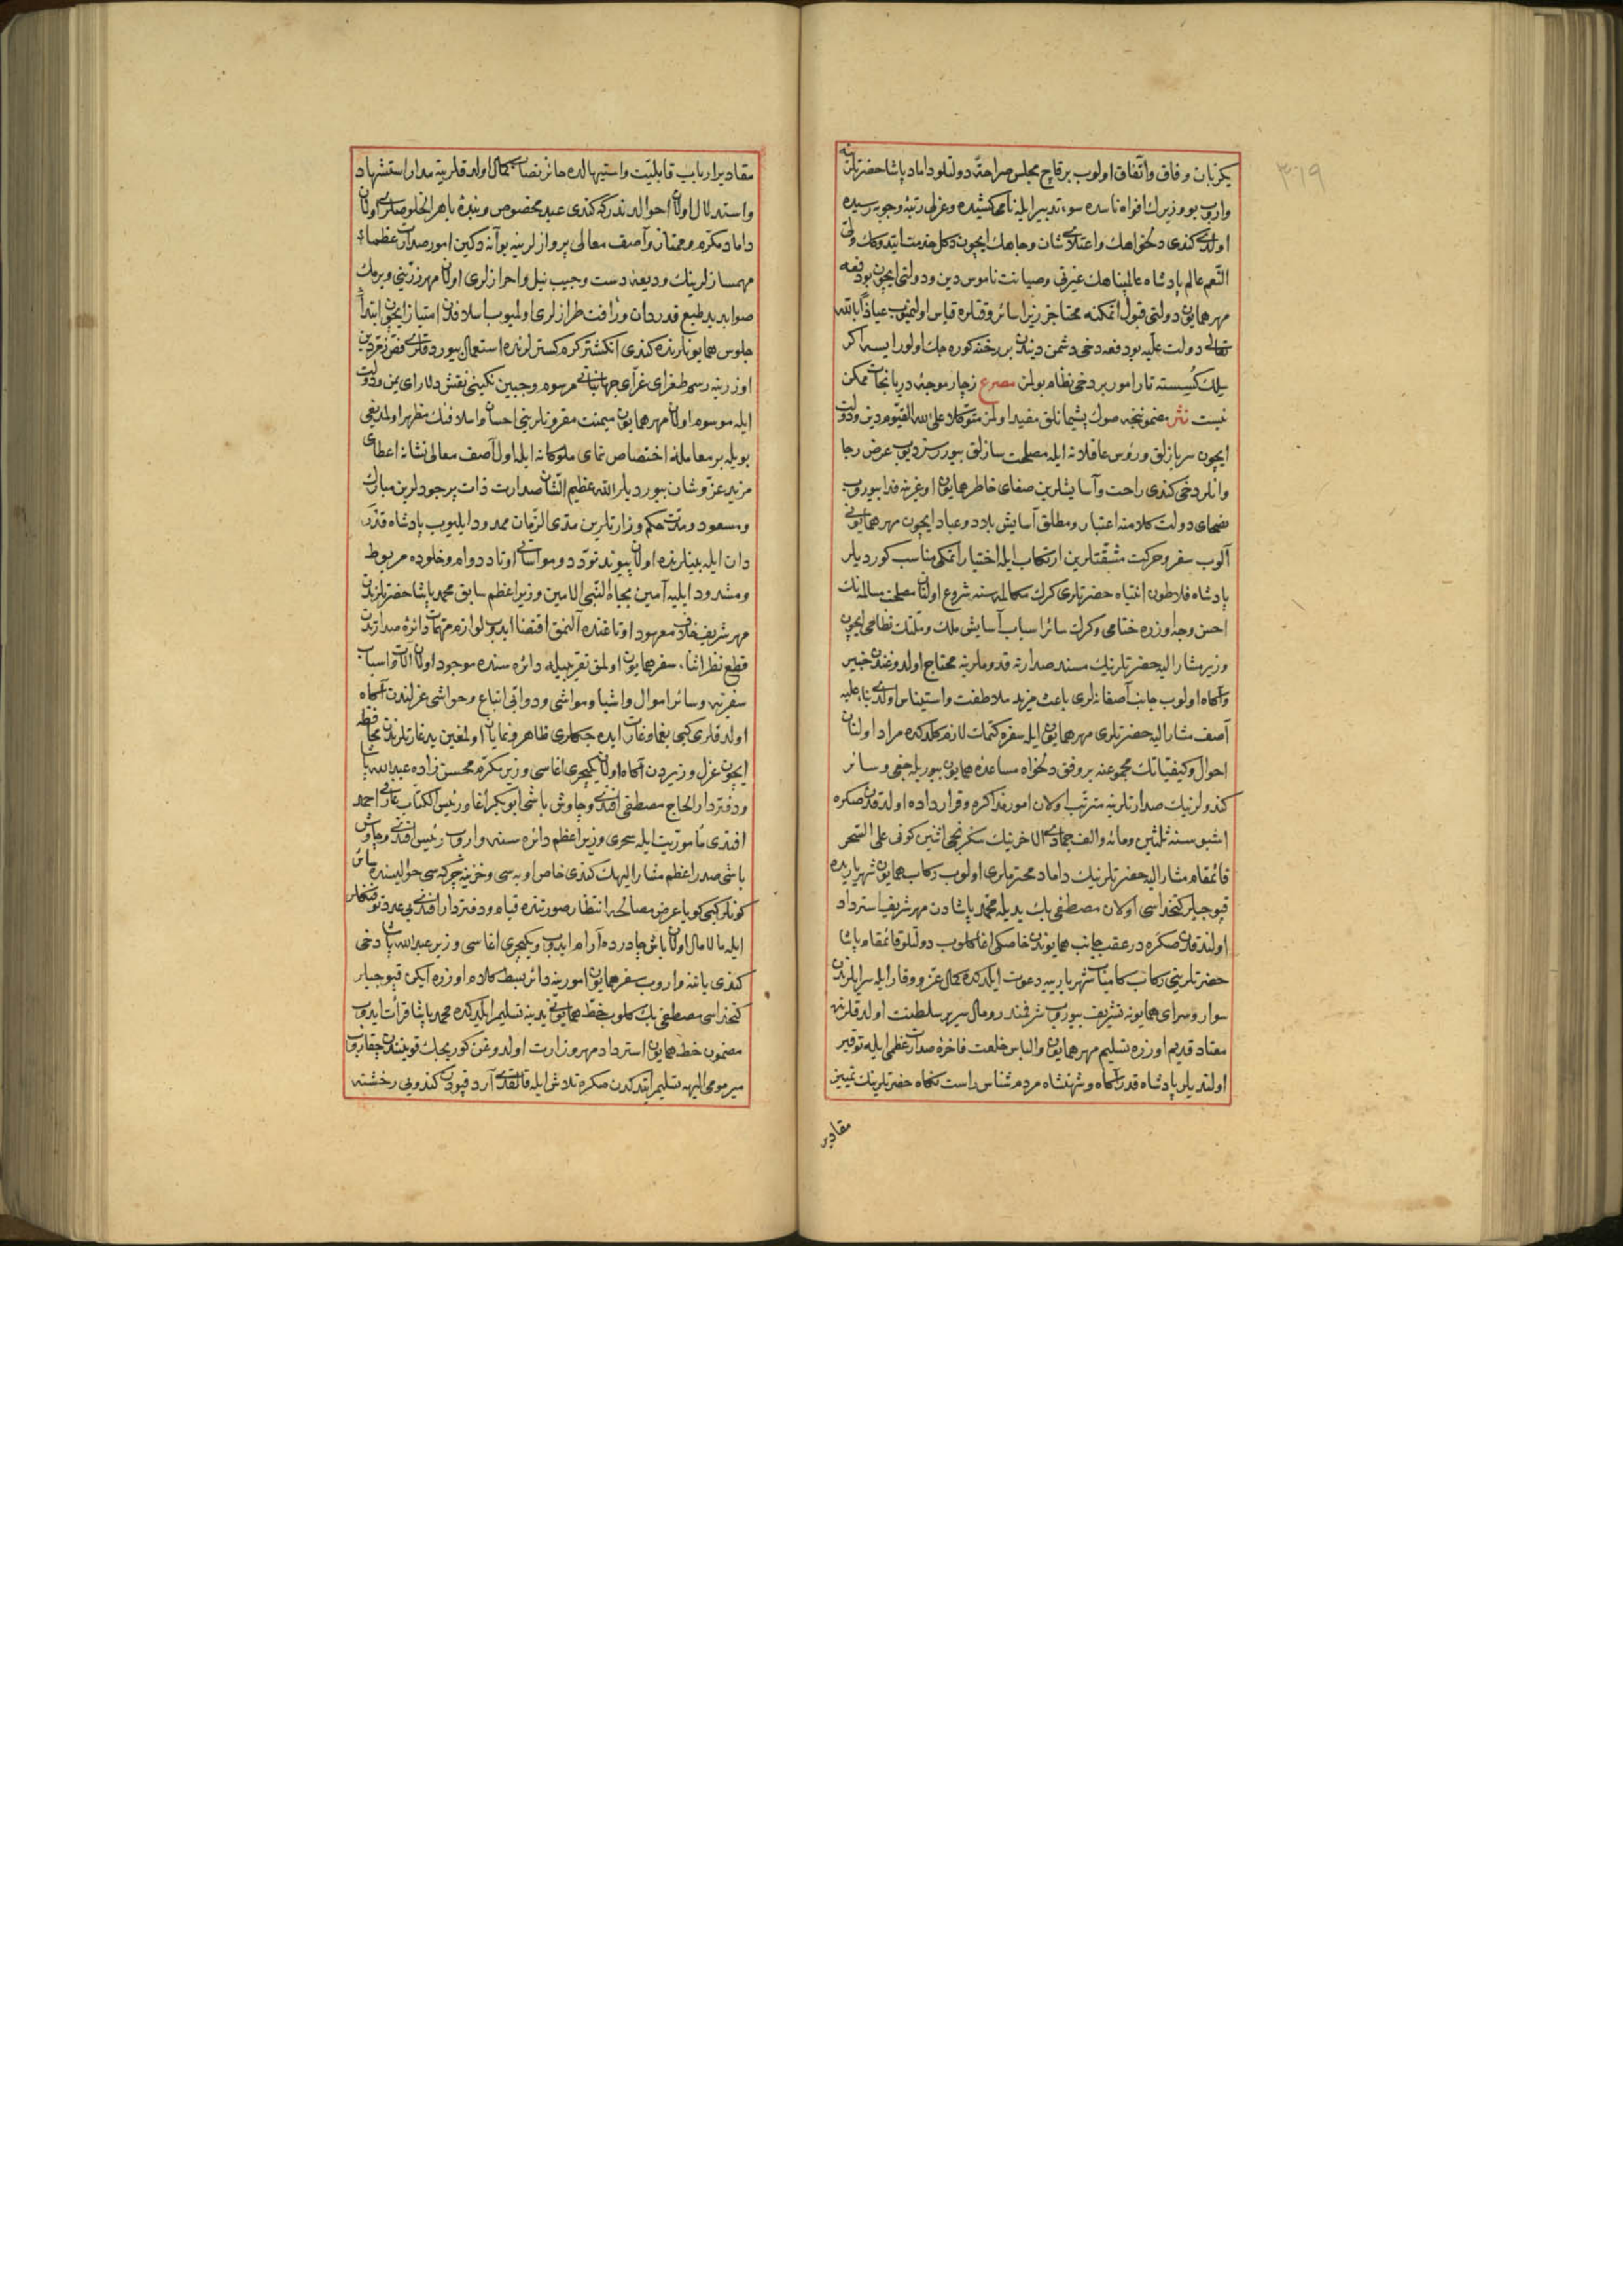 ٣٦٩
یکزبان وفاق واتفاق اولوب برقاچ مجلس صراحة دولتلو داماد پاشا حضرتلرینه
واروب بو وزیرك افواه ناسده سوء تدبیر ایله نامی کشیده وعزلی رتبۀ وجوبه رسیده
اولدی کندی دلخواهك واعتلای شان وجاهك ایچون دکل خدمت ایتدوکك ولی
النعم عالم پادشاه عالمپناهك عرضی وصیانت ناموس دین ودولتی ایچون بو دفعه
مهر همایون دولتی قبول اتمکنه محتاجز زیرا سائر وقتلره قیاس اولنمیوب عیاذا بالله
تعالی دولت علیه بو دفعه دخی دشمن دیندن بر رخنه کوره جك اولور ایسه اکر
سلك کسسته تار امور بر دخی نظام بولمز مصرع زچار موجۀ دریا نجات ممکن
نیست نثر مضموننجه صوك پشیمانلق مفید اولمز متوکلا علی الله القیوم دین ودولت
ایچون سربازلق وروس عاقلانه ایله مصلحت سازلق بیوررسز دیوب عرض رجا
وانلر دخی کندی راحت وآسایشلرین صفای خاطر همایون اوغرینه فدا بیوروب
ضحای دولت کلامنه اعتبار ومطلق آسایش بلاد وعباد ایچون مهر همایونی
آلوب سفر وحرکت مشقتلرین ارتکاب ایله اختیار اتمکی مناسب کوردیلر
پادشاه فلاطون انتباه حضرتلری کرك مکالمه سنه شروع اولنان مصلحت مسالمه نك
احسن وجه اوزره ختامی وکرك سائر اسباب آسایش ملك وملتك نظامی ایچون
وزیر مشار الیه حضرتلرینك مسند صدارته قدوملرینه محتاج اولدوغندن خبیر
وآکاه اولوب جانب آصفانه لری باعث مزید ملاطفت واستیناس اولدی بناء علیه
آصف مشار الیه حضرتلری مهر همایون ایله سفره کتمك لازم کلدکده مراد اولنان
احوال وکیفیاتك مجموعنه بر وفق دلخواه مساعدۀ همایون بیوریله جغی وسائر
کندولرینك صدارتلرینه مترتب اولان امور مذاکره وقرارداده اولدقدن صکره
اشبو سنه ثلثین ومائه والف جمادی الاخرینك سکزنجی اثنین کونی علی السحر
قائمقام مشار الیه حضرتلرینك داماد محترملری اولوب رکاب همایون شهریاریده
قپوجیلر کتخداسی اولان مصطفی بك یدیله محمد پاشادن مهر شریف استرداد
اولندقدن صکره در عقب جانب همایوندن خاصکی اغا کلوب دولتلو قائمقام پاشا
حضرتلرینی رکاب کامیاب شهریاریه دعوت ایلدکده کمال عز ووقار ایله سرایلرندن
سوار وسرای همایونه تشریف بیوروب شرفمند رومال سریر سلطنت اولدقلرنده
معتاد قدیم اوزره تسلیم مهر همایون والباس خلعت فاخرۀ صدارت عظمی ایله توقیر
اولندیلر پادشاه قدر آکاه وشهنشاه مردم شناس راست نکاه حضرتلرینك تمییز
مقادیر
مقادیر ارباب قابلیت واستیهالده حائز نصاب کمال اولدقلرینه مدار استشهاد
واستدلال اولان احوالدندر که کندی عبد مخصوص وبندۀ باهر الخلوصلری اولان
داماد مکرم وممتاز وآصف معالی پروازلرینه بو آنه دکین امور صدارت عظماء
مهمسازلرینك ودیعۀ دست وجیب نیل واحرازلری اولان مهر زرینی ویرمك
صوابدید طبع قدردان ورافت طرازلری اولمیوب اسلافدن امتیاز ایچون ابتداء
جلوس همایونلرنده کندی انکشتر کرم کسترلرنده استعمال بیوردقلری فص زمردین
اوزرینه رسم طغرای غرای جهانبانی مرسوم وجبین نکینی نقش دلارای یمن ودولت
ایله موسوم اولان مهر همایون میمنت مقرونلرینی احسان واسلافنك مظهر اولمدیغی
بویله بر معاملۀ اختصاص نمای ملوکانه ایله اول آصف معالی نشانه اعطای
مزید عز وشان بیوردیلر الله عظیم الشان صدارت ذات پرجودلرین مبارك
ومسعود ومدت حکم وزارتلرین مدی الزمان ممدود ایلیوب پادشاه قدر
دان ایله بینلرنده اولان پیوند تودد ومواساتی اوتاد دوام وخلوده مربوط
ومشدود ایلیه آمین بجاه النبی الامین وزیر اعظم سابق محمد پاشا حضرتلرندن
مهر شریف خلاف معهود اوتاغنده آلنمق اقتضا ایدوب لوازم مهمات دائرۀ صدارتدن
قطع نظر اثناء سفر همایون اولمق تقریبیله دائره سنده موجود اولان آلات واسباب
سفریه وسائر اموال واشیا ومواشی ودوابی اتباع وحواشی عزلندن آکاه
اولدقلری کبی یغما وغارت ایده جکلری ظاهر ونمایان اولمغین ید غارتلرندن محافظه
ایچون عزل وزیردن آکاه اولان یکیچری اغاسی وزیر مکرم محسن زاده عبد الله پاشا
ودفتردار الحاج مصطفی افندی وچاوش باشی ابو بکر اغا ورئیس الکتاب عارفی احمد
افندی مأموریت ایله سحری وزیر اعظم دائره سنه واروب رئیس افندی وچاوش
باشی صدر اعظم مشار الیهك کندی خاص اوبه سی وخزینه چرکه سی حوالیسنده سائر
کونلر کبی کویا عرض مصالحه انتظار صورتنده قیام ودفتردار افندی بی عدد توفنکلر
ایله مالامال اولان باش چادرده آرام ایدوب ویکیچری اغاسی وزیر عبد الله پاشا دخی
کندی یاننه واروب سفر همایون امورینه دائر بسط کلام اوزره ایکن قپوجیلر
کتخداسی مصطفی بك کلوب خط همایونی یدینه تسلیم ایلدکده محمد پاشا قرائت ایدوب
مضمون خط همایون استرداد مهر وزارت اولدوغن کوریجك قوینندن چقاروب
میر مومی الیهه تسلیم ایتدکدن صکره تلاش ایله قالقدی آرد قپودن کندویی رخشنه